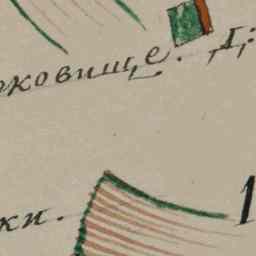 оковище. Д:
ки.